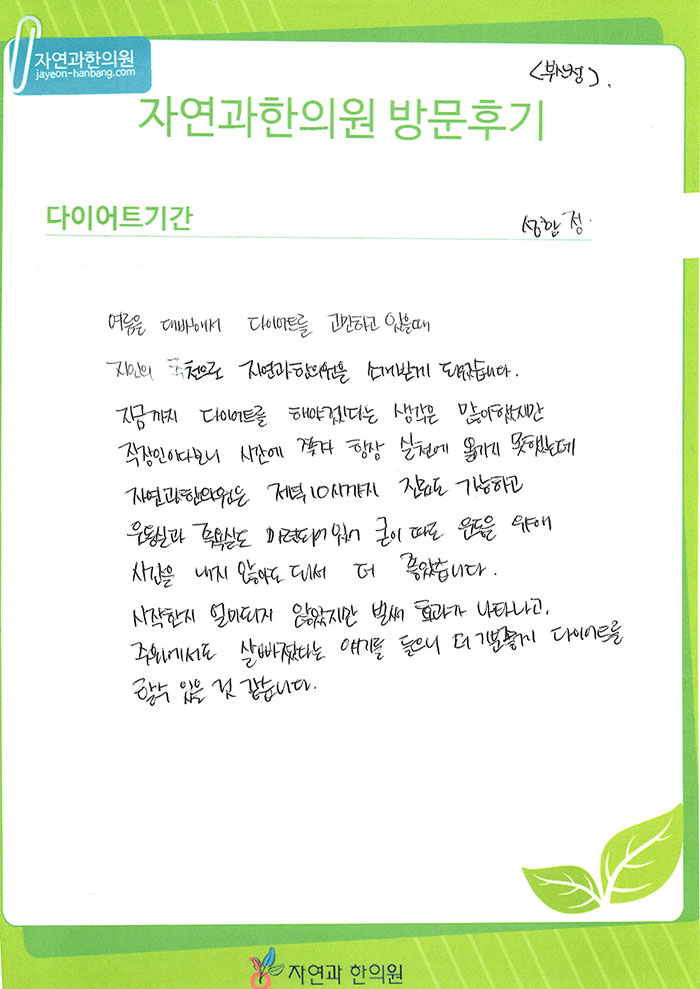 자연과한의원
jayeon-hanbang.com
자연과한의원 방문후기
다이어트기간
여름을 대비해서 다이어트를 고민하고 있을때
지인의 추천으로 자연과한의원을 소개받게 되었습니다.
지금까지 다이어트를 해야겠다는 생각은 많이했지만
직장인이다보니 시간에 쫓겨 항상 실천에 옮기지 못했는데
자연과한의원은 저녁10시까지 진료도 가능하고
운동실과 목욕실도 마련되어있어 굳이 따로 운동을 위해
시간을 내지 않아도 되서 더 좋았습니다.
시작한지 얼마되지 않았지만 벌써 효과가 나타나고,
주위에서도 살빠졌다는 얘기를 들으니 더 기분좋게 다이어트를
할수 있을 것 같습니다.
자연과 한의원